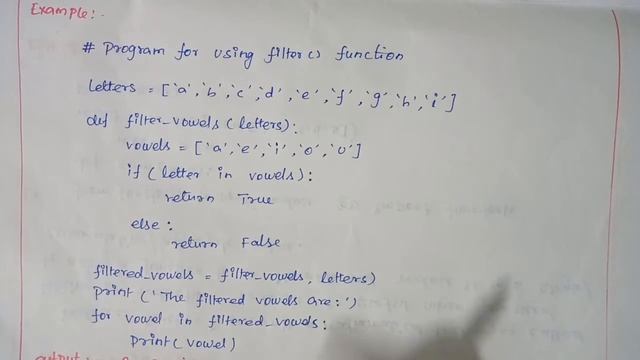 Example:-
# Program for using filter() function
letters = ['a','b','c','d','e','f','g','h','i']
def filter_vowels(letters):
vowels = ['a','e','i','o','u']
if(letter in vowels):
return True
else:
return False
filtered_vowels = filter_vowels, letters)
print('The filtered vowels are:')
for vowel in filtered_vowels:
print(vowel)